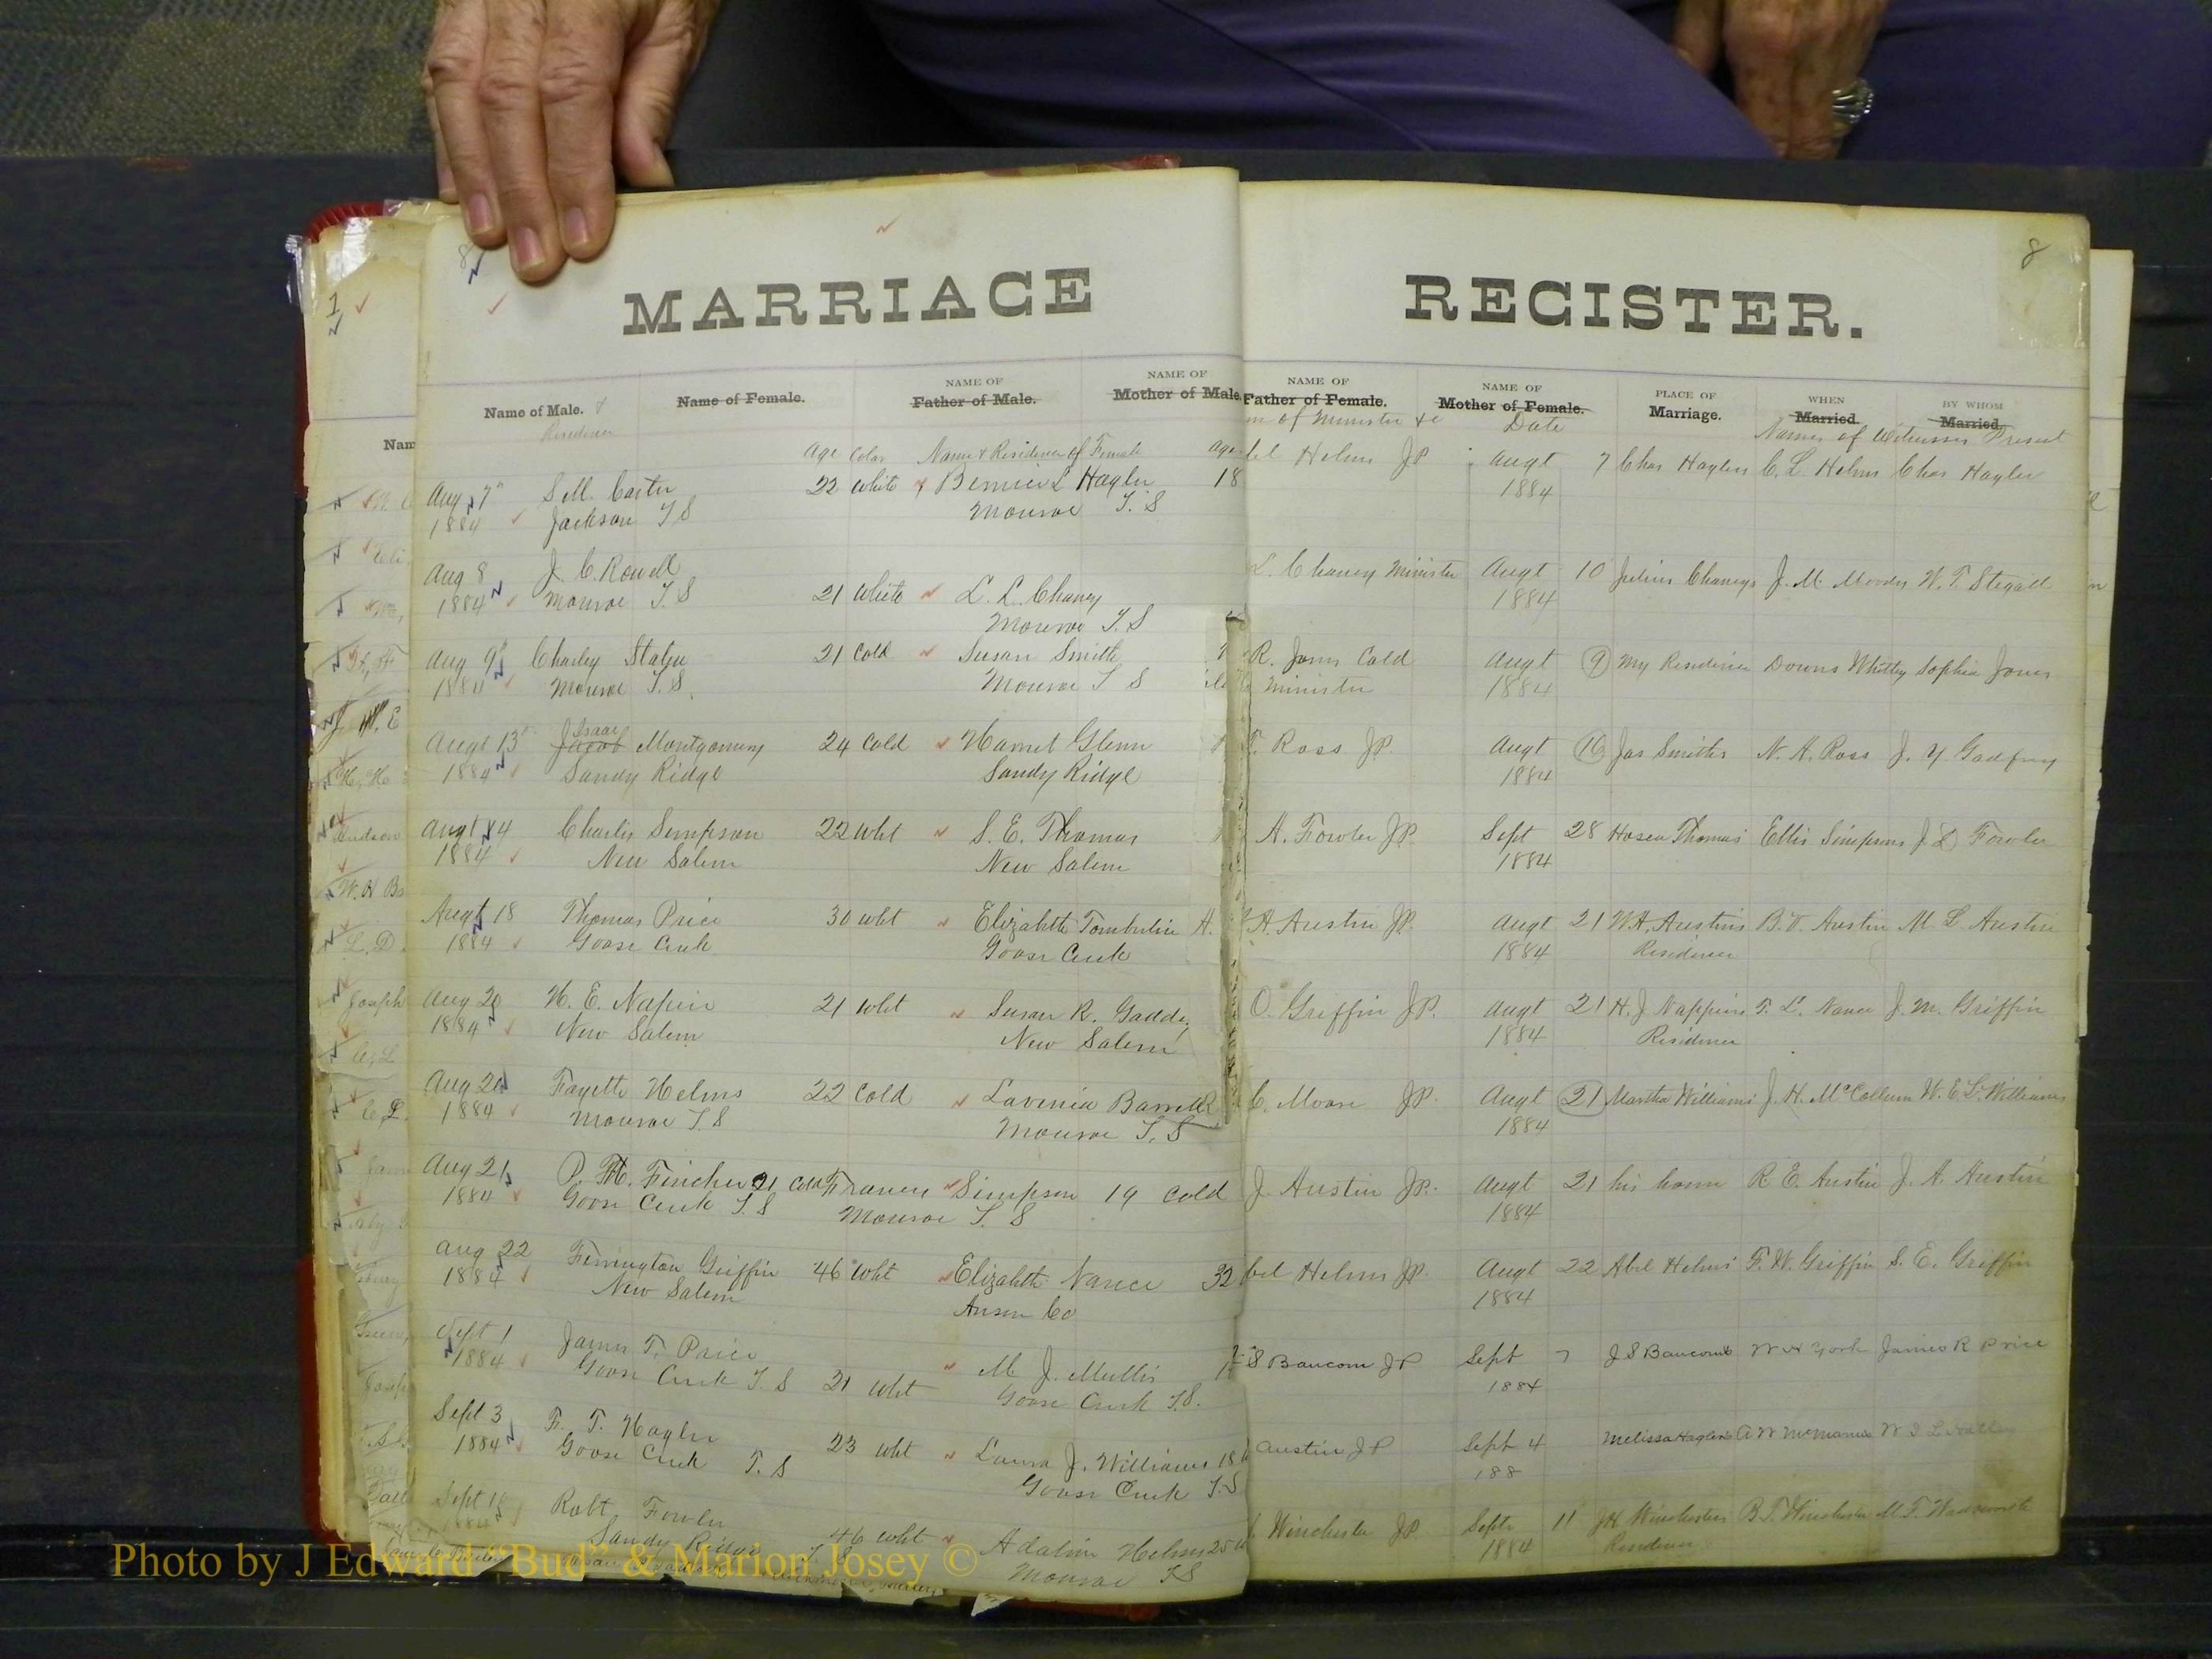 8
8
MARRIAGE REGISTER.
Name of Male. & Name of Female. NAME OF Father of Male. NAME OF Mother of Male. NAME OF Father of Female. NAME OF Mother of Female. PLACE OF Marriage. WHEN Married. BY WHOM Married.
Residence Age Color Name & Residence of Female Age of Minister &c Date Names of Witnesses Present
Aug 7" S. M. Carter 22 White Bernice L Hagler 18 Helms JP Augt 7 Chas Haglers C. L. Helms Chas Hagler
1884 Jackson T S Monroe T. S 1884
Aug 8 J. C. Rowell 21 White L. L. Chaney L. Chaney Minister Augt 10 Julius Chaneys J. M. Moody W. T. Stegall
1884 Monroe T. S Monroe T. S 1884
Aug 9" Charley 21 Cold Susan Smith R. Jones Cold Augt 9 My Residence Downs Whitley Sophia Jones
1884 Monroe T. S. Monroe T S Minister 1884
Augt 13" Isaac Jacob Montgomery 24 Cold Glenn Ross JP. Augt 16 Jas Smiths N. A. Ross J. Y Godfrey
1884 Sandy Ridge Sandy Ridge 1884
Augt 14 Charlie Simpson 22 wht S. E. Thomas A. Fowler JP Sept 28 Hosea Thomas' Ellis Simpson J. D Fowler
1884 New Salem New Salem 1884
Augt 18 Thomas Price 30 wht Elizabeth Tomberlin A. Austin JP. Augt 21 W. A. Austins B. V. Austin M. L. Austin
1884 Goose Creek Goose Creek 1884 Residence
Aug 20 H. E. Napier 21 wht Susan R. Gaddy O. Griffin JP. Augt 21 H. J Nappiers T. L. Nance J. M. Griffin
1884 New Salem New Salem 1884 Residence
Aug 20 Fayette Helms 22 Cold Lavenia Barrett C. Moore JP. Augt 21 Martha Williams' J. H. McCollum W. E. L. Williams
1884 Monroe T. S Monroe T. S 1884
Aug 21 P. H. Fincher 21 Cold Frances Simpson 19 Cold J. Austin JP. Augt 21 his home R. E. Austin J. A. Austin
1884 Goose Creek T. S Monroe T. S 1884
Aug 22 Ferrington Griffin 46 wht Elizabeth Nance 32 Helms JP. Augt 22 Abel Helms' F. W. Griffin S. E. Griffin
1884 New Salem Anson Co 1884
Sept 1 James T. Price 21 wht M J. Mullis S Baucom JP Sept 7 J S Baucoms W H York James R Price
1884 Goose Creek T. S Goose Creek T.S. 1884
Sept 3 F. T. Hagler 23 wht Laura J. Williams 18 Austin JP Sept 4 Melissa Haglers A W McManus
1884 Goose Creek T. S Goose Creek T.S 188
Sept 10 Robt Fowler 46 wht Adaline Helms 25 Winchester JP Sept 11 J H Winchesters B. T. Winchester M. F. Wadsworth
1884 Sandy Ridge Monroe TS 1884 Residence
Photo by J Edward "Bud" & Marion Josey ©